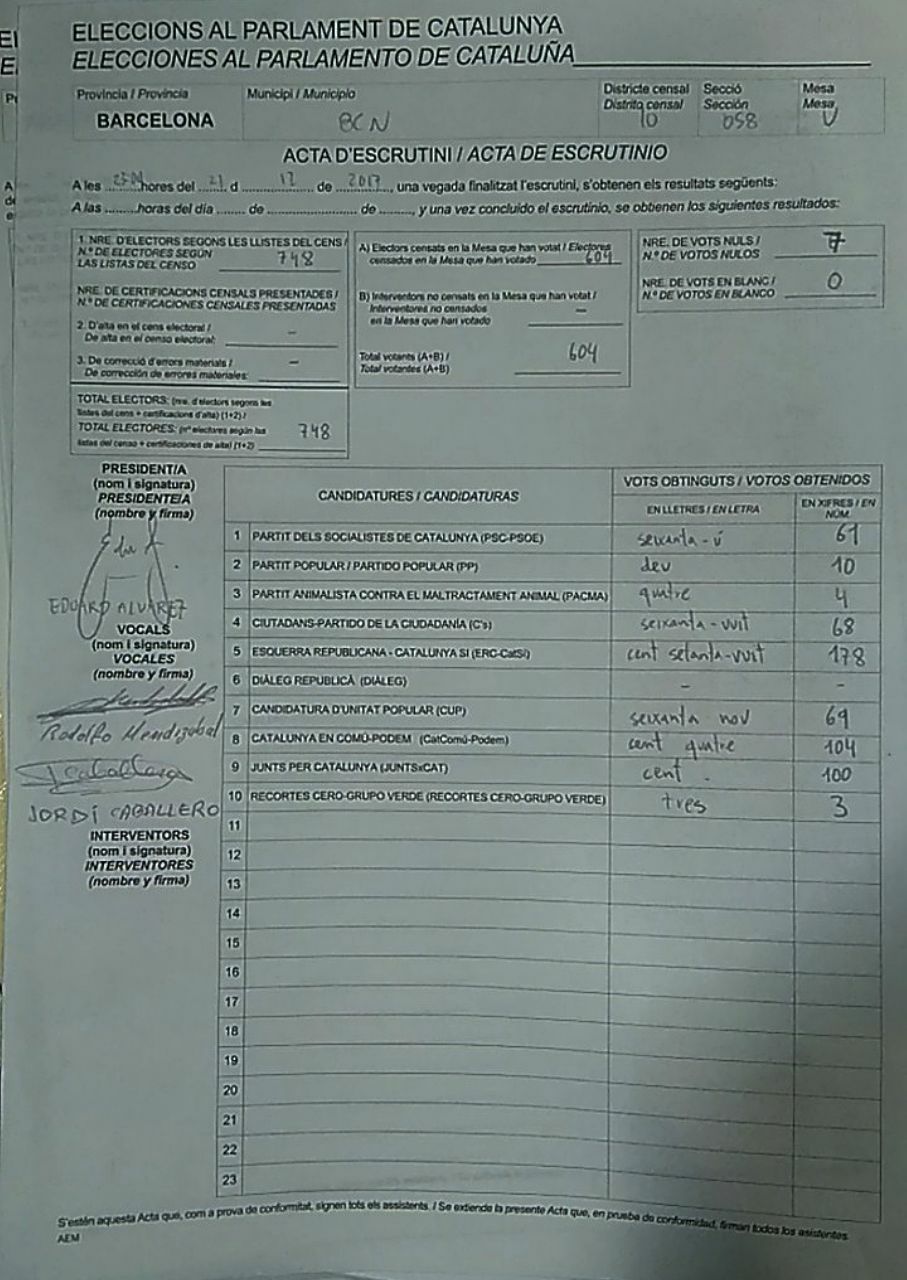 ELECCIONS AL PARLAMENT DE CATALUNYA
ELECCIONES AL PARLAMENTO DE CATALUÑA
Província / Provincia
BARCELONA
Municipi / Municipio
BCN
Districte censal
Distrito censal
10
Secció
Sección
058
Mesa
Mesa
U
ACTA D'ESCRUTINI / ACTA DE ESCRUTINIO
A les hores del 21 d 12 de 2017, una vegada finalitzat l'escrutini, s'obtenen els resultats següents:
A las ........horas del día ....... de ....................... de ........, y una vez concluido el escrutinio, se obtienen los siguientes resultados:
1. NRE. D'ELECTORS SEGONS LES LLISTES DEL CENS /
N.º DE ELECTORES SEGÚN
LAS LISTAS DEL CENSO 748
NRE. DE CERTIFICACIONS CENSALS PRESENTADES /
N.º DE CERTIFICACIONES CENSALES PRESENTADAS
2. D'alta en el cens electoral /
De alta en el censo electoral: –
3. De correcció d'errors materials / –
De corrección de errores materiales:
TOTAL ELECTORS: (nre. d'electors segons les
llistes del cens + certificacions d'alta) (1+2) /
TOTAL ELECTORES: (nº electores según las 748
listas del censo + certificaciones de alta) (1+2)
A) Electors censats en la Mesa que han votat / Electores
censados en la Mesa que han votado 604
B) Interventors no censats en la Mesa que han votat /
Interventores no censados –
en la Mesa que han votado
Total votants (A+B) / 604
Total votantes (A+B)
NRE. DE VOTS NULS / 7
N.º DE VOTOS NULOS
NRE. DE VOTS EN BLANC / 0
N.º DE VOTOS EN BLANCO
PRESIDENT/A
(nom i signatura)
PRESIDENTE/A
(nombre y firma)
EDUARD ALVAREZ
VOCALS
(nom i signatura)
VOCALES
(nombre y firma)
Rodolfo Mendizabal
JORDI CABALLERO
INTERVENTORS
(nom i signatura)
INTERVENTORES
(nombre y firma)
CANDIDATURES / CANDIDATURAS
VOTS OBTINGUTS / VOTOS OBTENIDOS
EN LLETRES / EN LETRA
EN XIFRES / EN
NÚM.
1 PARTIT DELS SOCIALISTES DE CATALUNYA (PSC-PSOE) seixanta-ú 61
2 PARTIT POPULAR / PARTIDO POPULAR (PP) deu 10
3 PARTIT ANIMALISTA CONTRA EL MALTRACTAMENT ANIMAL (PACMA) quatre 4
4 CIUTADANS-PARTIDO DE LA CIUDADANÍA (C's) seixanta-vuit 68
5 ESQUERRA REPUBLICANA - CATALUNYA SÍ (ERC-CatSí) cent setanta-vuit 178
6 DIÀLEG REPUBLICÀ (DIÀLEG) – –
7 CANDIDATURA D'UNITAT POPULAR (CUP) seixanta nou 69
8 CATALUNYA EN COMÚ-PODEM (CatComú-Podem) cent quatre 104
9 JUNTS PER CATALUNYA (JUNTSxCAT) cent . 100
10 RECORTES CERO-GRUPO VERDE (RECORTES CERO-GRUPO VERDE) tres 3
11
12
13
14
15
16
17
18
19
20
21
22
23
S'estén aquesta Acta que, com a prova de conformitat, signen tots els assistents. / Se extiende la presente Acta que, en prueba de conformidad, firman todos los asistentes.
AEM